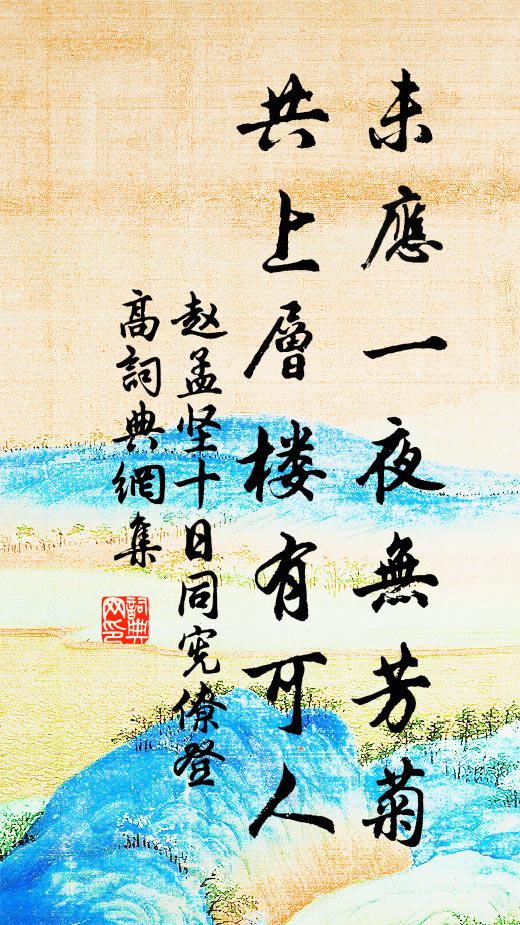 未應一夜無芳菊
共上層楼有可人
赵孟坚十日同宪僚登
高詞典網集
詞典
网印